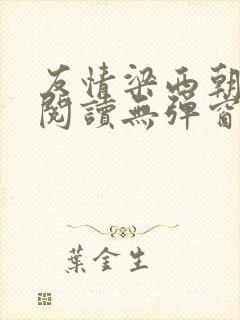 友情梁西朝
閱讀無彈窗
葉金生